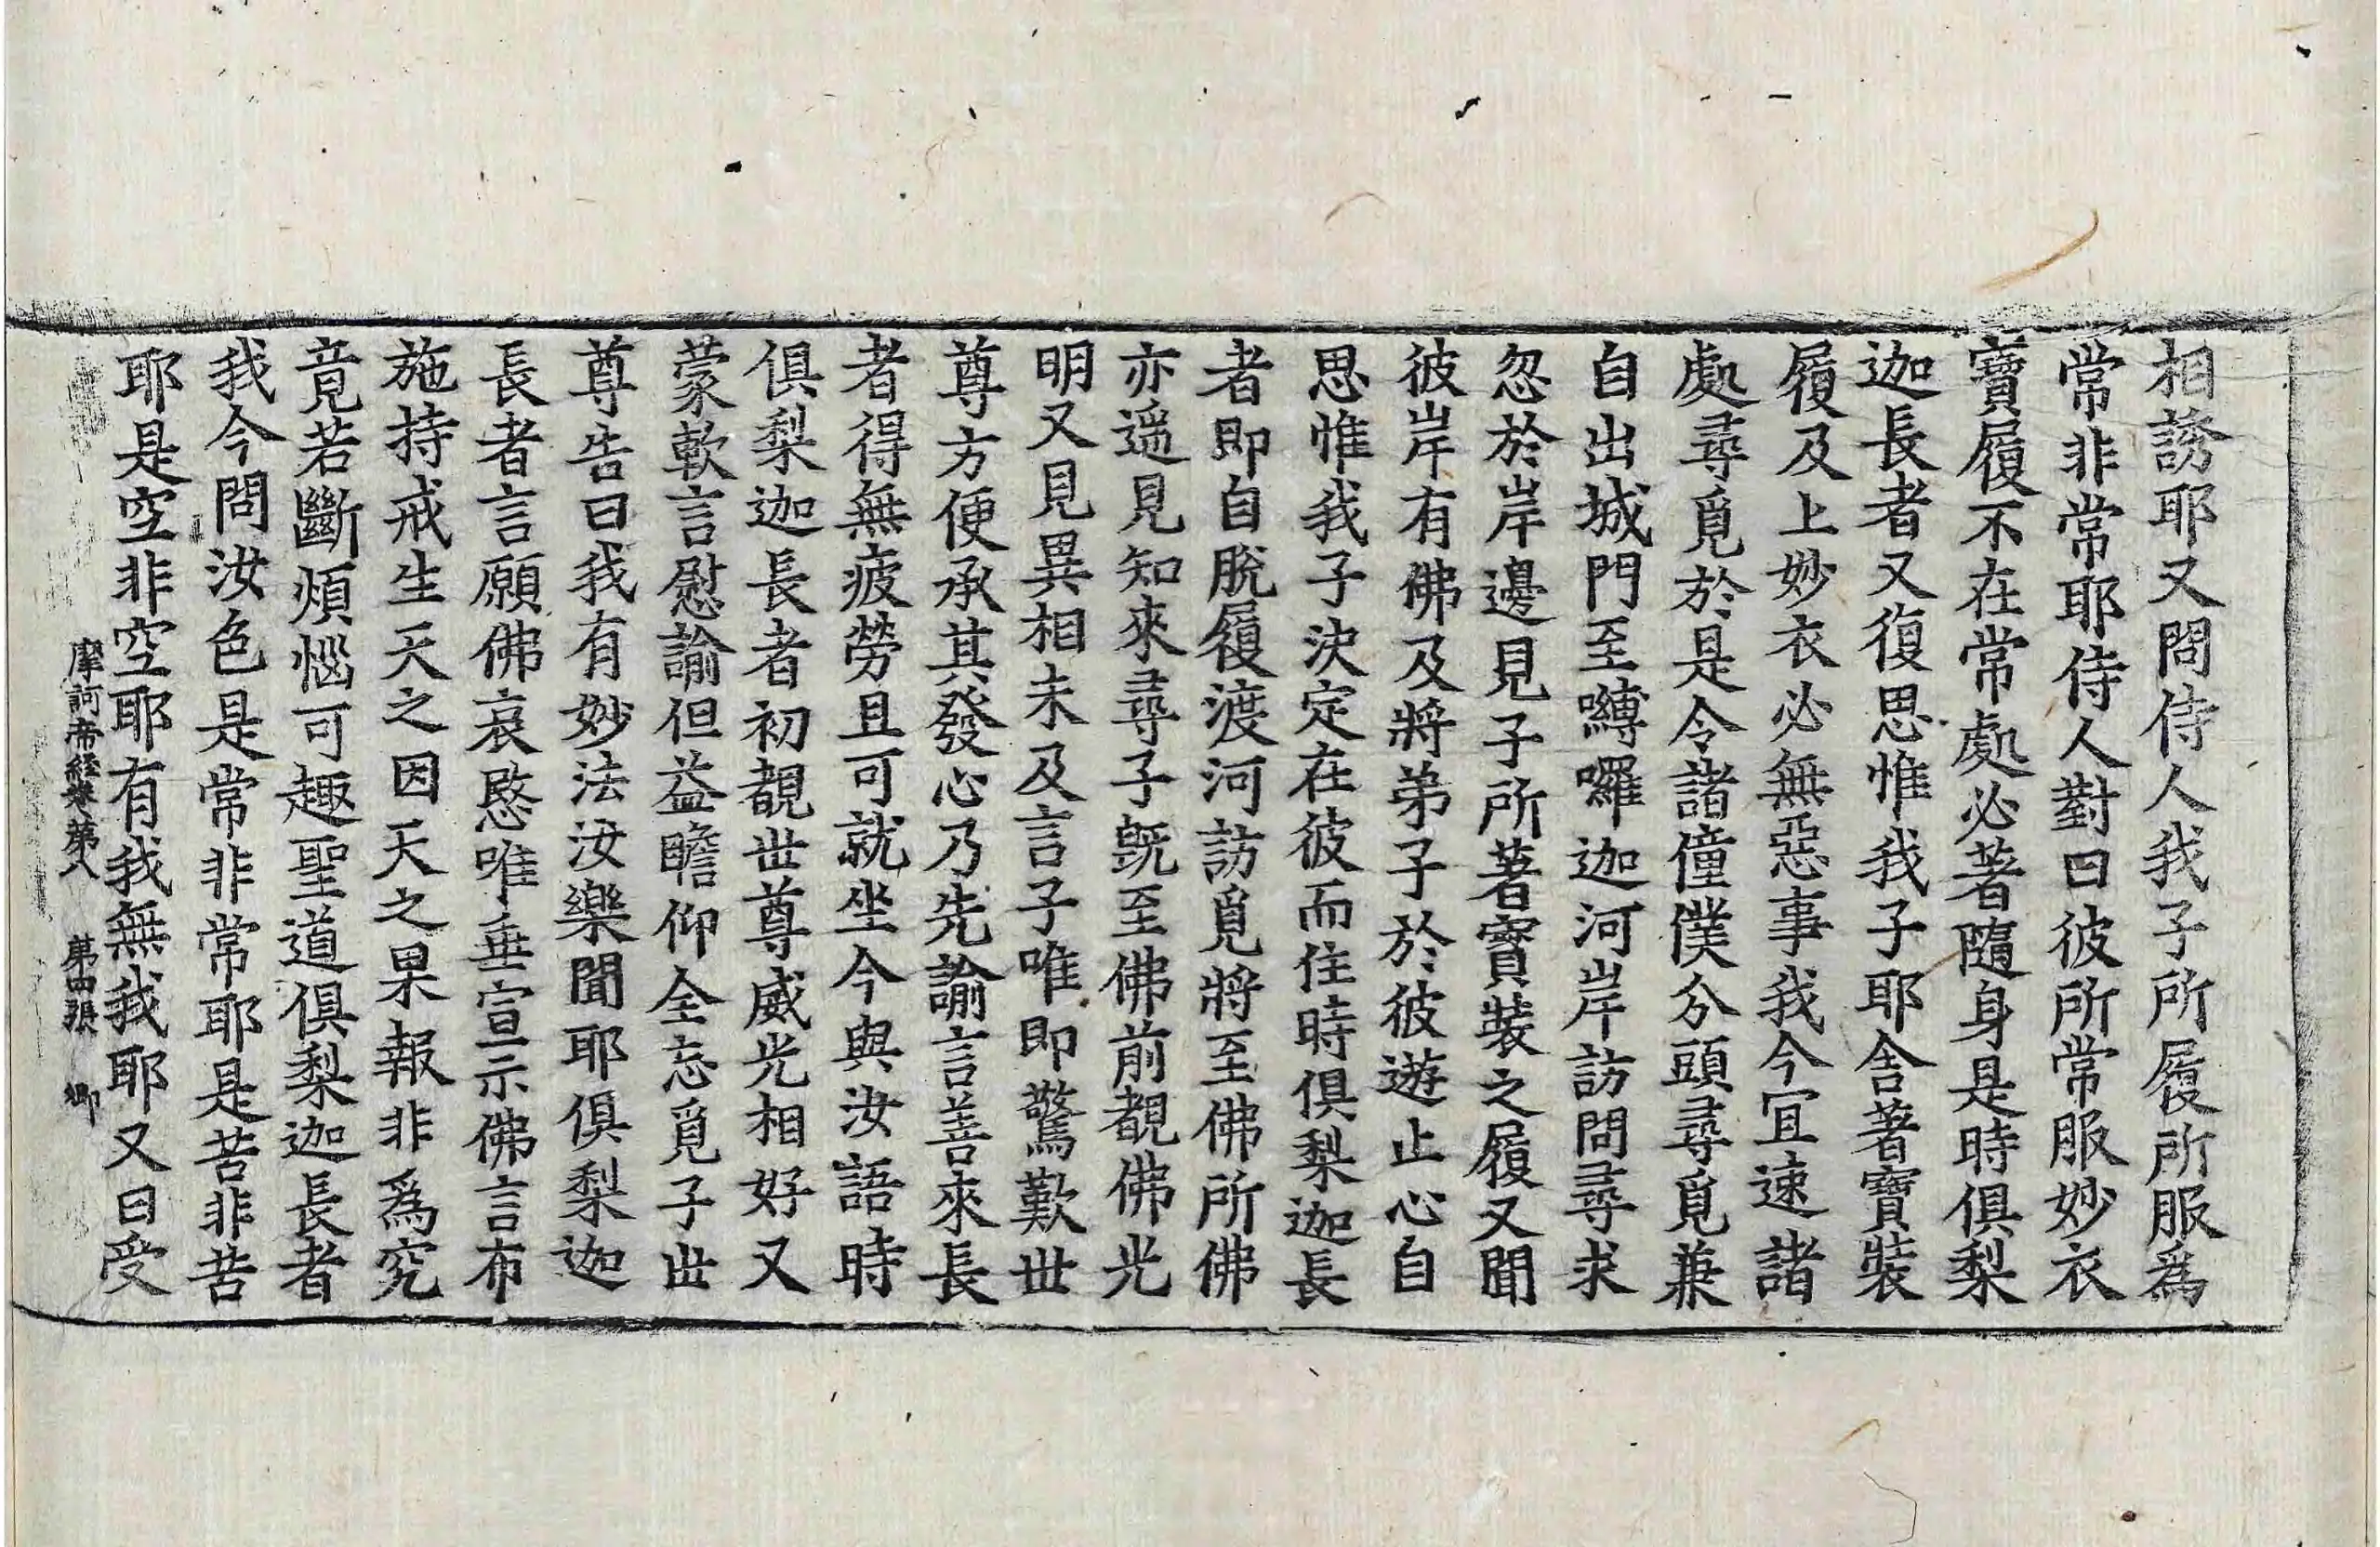 相誘耶又問侍人我子所履所服爲
常非常耶侍人對曰彼所常服妙衣
寶履不在常處必著隨身是時俱梨
迦長者又復思惟我子耶舍著寶裝
履及上妙衣必無惡事我今宜速諸
處尋覓於是令諸僮僕分頭尋覓兼
自出城門至嚩囉迦河岸訪問尋求
忽於岸邊見子所著寶裝之履又聞
彼岸有佛及將弟子於彼遊止心自
思惟我子決定在彼而住時俱梨迦長
者即自脫履渡河訪覓將至佛所佛
亦遥見知來尋子旣至佛前覩佛光
明又見異相未及言子唯即驚歎世
尊方便承其發心乃先諭言善來長
者得無疲勞且可就坐今與汝語時
俱梨迦長者初覩世尊威光相好又
蒙軟言慰諭但益瞻仰全忘覓子世
尊告曰我有妙法汝樂聞耶俱梨迦
長者言願佛哀愍唯垂宣示佛言布
施持戒生天之因天之果報非爲究
竟若斷煩惱可趣聖道俱梨迦長者
我今問汝色是常非常耶是苦非苦
耶是空非空耶有我無我耶又曰受
摩訶帝經卷第八 第四張 卿